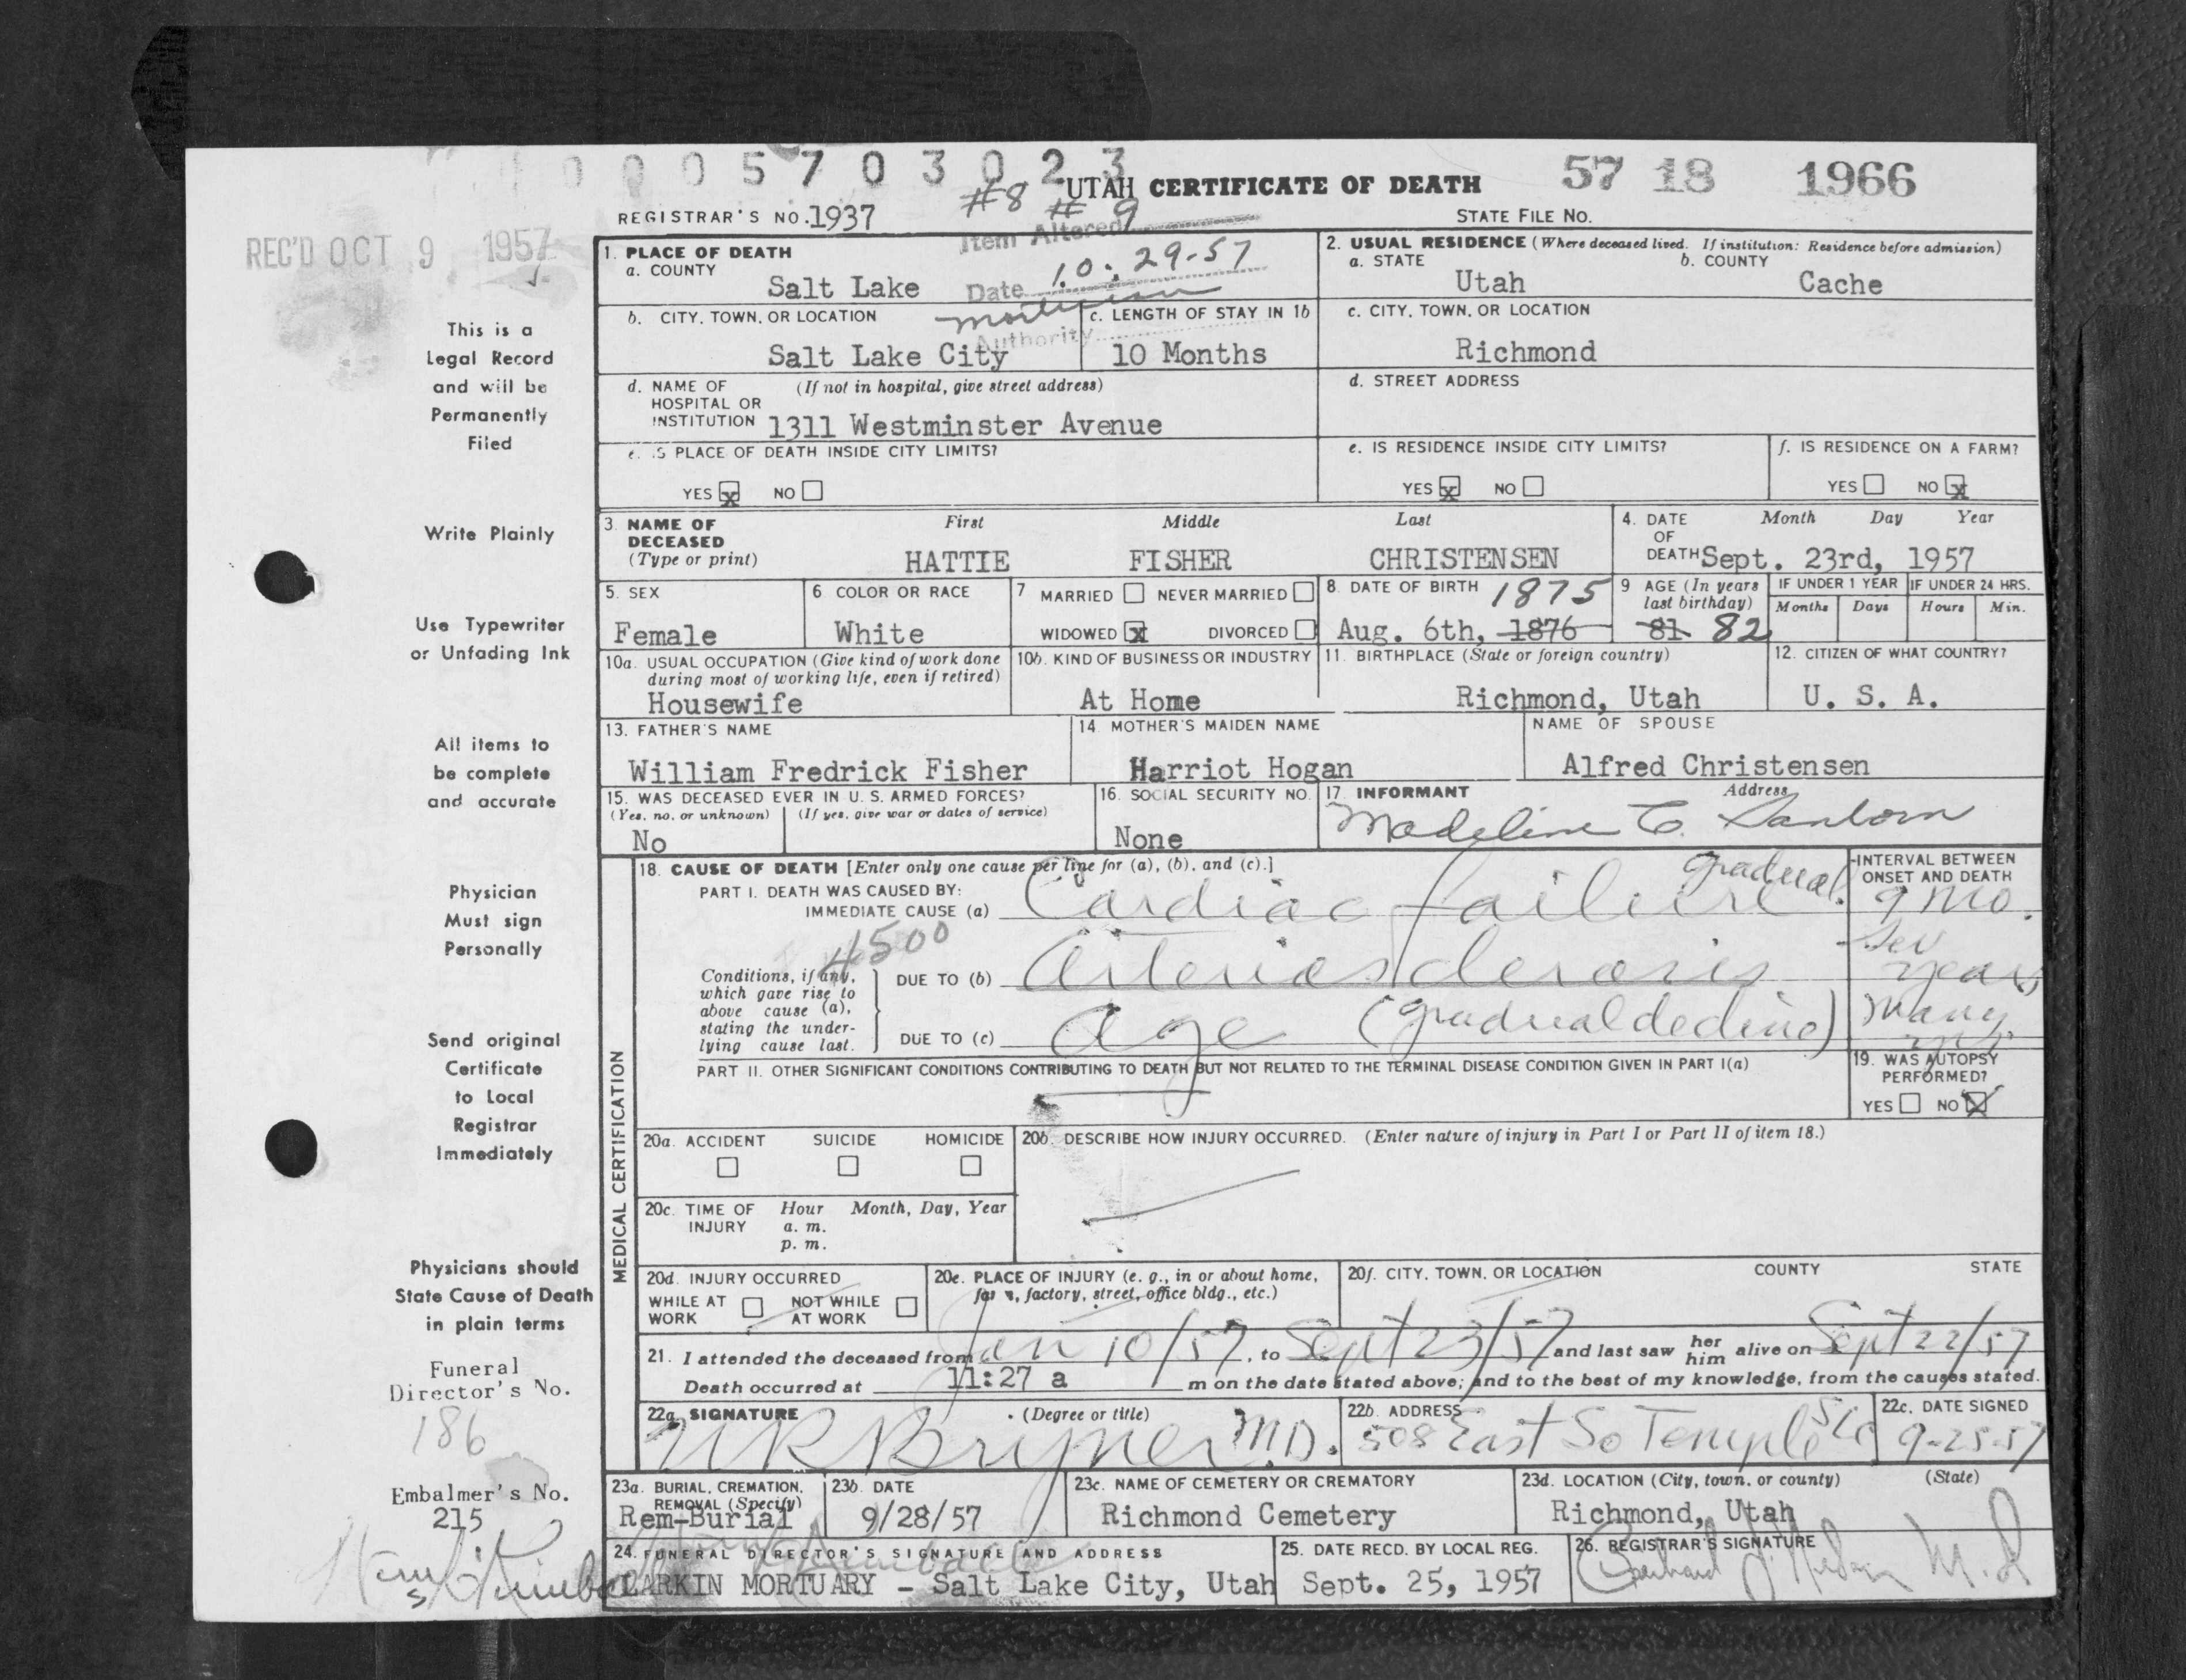 0005703023
UTAH CERTIFICATE OF DEATH
57 18 1966
REGISTRAR'S NO. 1937
#8 # 9
STATE FILE NO.
REC'D OCT 9 1957
Item Altered
Date 10-29-57
Authority
1. PLACE OF DEATH
a. COUNTY
Salt Lake
2. USUAL RESIDENCE (Where deceased lived. If institution: Residence before admission)
a. STATE
Utah
b. COUNTY
Cache
b. CITY, TOWN, OR LOCATION
Salt Lake City
c. LENGTH OF STAY IN 1b
10 Months
c. CITY, TOWN, OR LOCATION
Richmond
d. NAME OF HOSPITAL OR INSTITUTION (If not in hospital, give street address)
1311 Westminster Avenue
d. STREET ADDRESS
e. IS PLACE OF DEATH INSIDE CITY LIMITS?
YES x NO
e. IS RESIDENCE INSIDE CITY LIMITS?
YES x NO
f. IS RESIDENCE ON A FARM?
YES NO x
3. NAME OF DECEASED (Type or print)
First Middle Last
HATTIE FISHER CHRISTENSEN
4. DATE OF DEATH Month Day Year
Sept. 23rd, 1957
5. SEX
Female
6 COLOR OR RACE
White
7 MARRIED NEVER MARRIED
WIDOWED x DIVORCED
8. DATE OF BIRTH 1875
Aug. 6th, 1876
9 AGE (In years last birthday)
81 82
IF UNDER 1 YEAR
Months Days
IF UNDER 24 HRS.
Hours Min.
10a. USUAL OCCUPATION (Give kind of work done during most of working life, even if retired)
Housewife
10b. KIND OF BUSINESS OR INDUSTRY
At Home
11. BIRTHPLACE (State or foreign country)
Richmond, Utah
12. CITIZEN OF WHAT COUNTRY?
U. S. A.
13. FATHER'S NAME
William Fredrick Fisher
14 MOTHER'S MAIDEN NAME
Harriot Hogan
NAME OF SPOUSE
Alfred Christensen
15. WAS DECEASED EVER IN U. S. ARMED FORCES?
(Yes, no, or unknown) (If yes, give war or dates of service)
No
16. SOCIAL SECURITY NO.
None
17. INFORMANT Address
Madeline C. Sanborn
MEDICAL CERTIFICATION
18. CAUSE OF DEATH [Enter only one cause per line for (a), (b), and (c).]
PART I. DEATH WAS CAUSED BY:
IMMEDIATE CAUSE (a) Cardiac failure gradual.
INTERVAL BETWEEN ONSET AND DEATH
9 mo.
4500
Conditions, if any, which gave rise to above cause (a), stating the underlying cause last.
DUE TO (b) Arteriosclerosis
Sev years
DUE TO (c) Age (gradual decline)
many yrs.
PART II. OTHER SIGNIFICANT CONDITIONS CONTRIBUTING TO DEATH BUT NOT RELATED TO THE TERMINAL DISEASE CONDITION GIVEN IN PART I(a)
19. WAS AUTOPSY PERFORMED?
YES NO X
20a. ACCIDENT SUICIDE HOMICIDE
20b. DESCRIBE HOW INJURY OCCURRED. (Enter nature of injury in Part I or Part II of item 18.)
20c. TIME OF INJURY Hour Month, Day, Year
a. m.
p. m.
20d. INJURY OCCURRED
WHILE AT WORK NOT WHILE AT WORK
20e. PLACE OF INJURY (e. g., in or about home, farm, factory, street, office bldg., etc.)
20f. CITY, TOWN, OR LOCATION COUNTY STATE
21. I attended the deceased from Jan 10/57, to Sept 23/57 and last saw her him alive on Sept 22/57
Death occurred at 11:27 a m on the date stated above; and to the best of my knowledge, from the causes stated.
22a. SIGNATURE (Degree or title)
M.D.
22b. ADDRESS
508 East So Temple SLC
22c. DATE SIGNED
9-25-57
23a. BURIAL, CREMATION, REMOVAL (Specify)
Rem-Burial
23b. DATE
9/28/57
23c. NAME OF CEMETERY OR CREMATORY
Richmond Cemetery
23d. LOCATION (City, town, or county) (State)
Richmond, Utah
24. FUNERAL DIRECTOR'S SIGNATURE AND ADDRESS
LARKIN MORTUARY - Salt Lake City, Utah
25. DATE RECD. BY LOCAL REG.
Sept. 25, 1957
26. REGISTRAR'S SIGNATURE
This is a
Legal Record
and will be
Permanently
Filed
Write Plainly
Use Typewriter
or Unfading Ink
All items to
be complete
and accurate
Physician
Must sign
Personally
Send original
Certificate
to Local
Registrar
Immediately
Physicians should
State Cause of Death
in plain terms
Funeral
Director's No.
186
Embalmer's No.
215